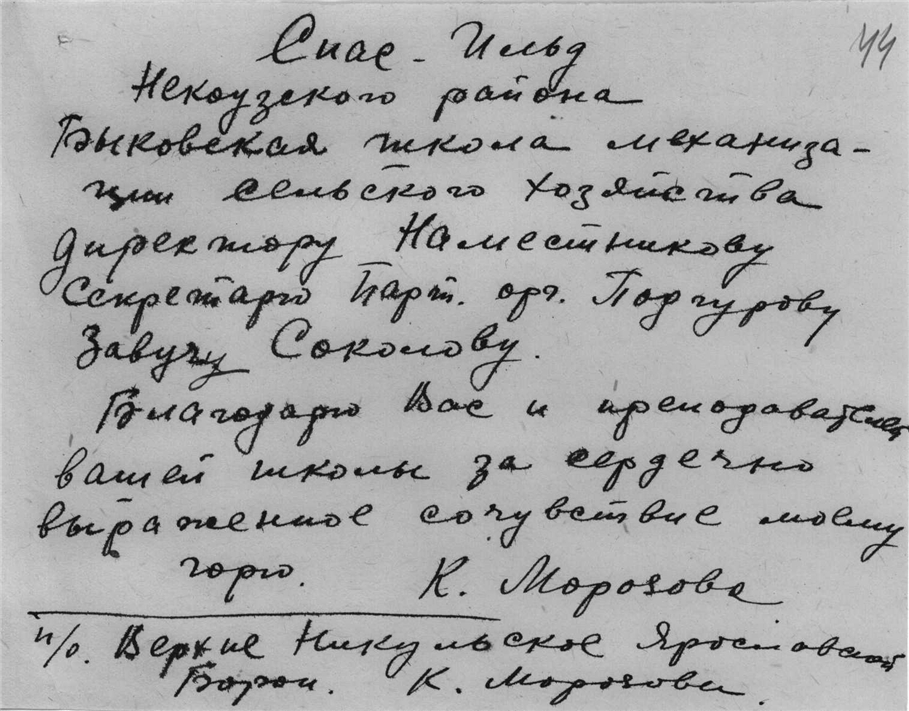 44
Спас - Ильд
Некоузского района
Быковская школа механиза-
ции сельского хозяйства
директору Наместникову
Секретарю Парт. орг. Подгурову
Завучу Соколову.
Благодарю Вас и преподавателей
вашей школы за сердечно
выраженное сочувствие моему
горю. К. Морозова
п/о. Верхне Никульское Ярославской
Борок. К. Морозова.